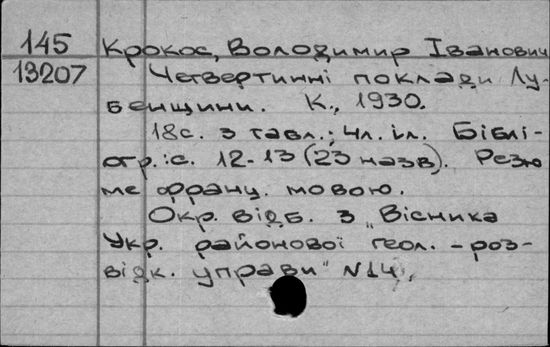 145 Крокос, Володимир Іванович
13207 Четвертинні поклади Лу-
бенщини. К., 1930.
18с. з табл.; 4л. іл. Біблі-
огр.: с. 12-13 (23 назв). Резю
ме франц. мовою.
Окр. відб. з „Вісника
Укр. районової геол. - роз-
відк. управи" №14.